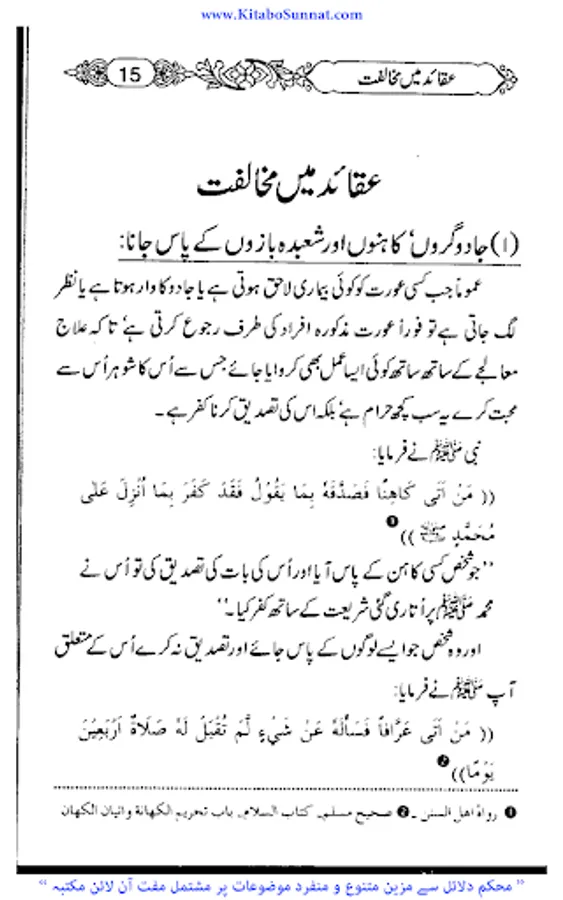 www.KitaboSunnat.com
عقائد میں مخالفت
15
عقائد میں مخالفت
(۱) جادوگروں‘ کاہنوں اور شعبدہ بازوں کے پاس جانا:
عموماً جب کسی عورت کو کوئی بیماری لاحق ہوتی ہے یا جادو کا وار ہوتا ہے یا نظر
لگ جاتی ہے تو فوراً عورت مذکورہ افراد کی طرف رجوع کرتی ہے‘ تاکہ علاج
معالجے کے ساتھ ساتھ کوئی ایسا عمل بھی کروایا جائے جس سے اُس کا شوہر اُس سے
محبت کرے یہ سب کچھ حرام ہے‘ بلکہ اس کی تصدیق کرنا کفر ہے۔
نبی ﷺ نے فرمایا:
(( مَنْ اَتٰی کَاهِنًا فَصَدَّقَهٗ بِمَا یَقُوْلُ فَقَدْ کَفَرَ بِمَا اُنْزِلَ عَلٰی
مُحَمَّدٍ ﷺ )) ❶
”جو شخص کسی کاہن کے پاس آیا اور اُس کی بات کی تصدیق کی تو اُس نے
محمد ﷺ پر اُتاری گئی شریعت کے ساتھ کفر کیا۔“
اور وہ شخص جو ایسے لوگوں کے پاس جائے اور تصدیق نہ کرے اُس کے متعلق
آپ ﷺ نے فرمایا:
(( مَنْ اَتٰی عَرَّافاً فَسَأَلَهٗ عَنْ شَیْءٍ لَّمْ تُقْبَلْ لَهٗ صَلَاةٌ اَرْبَعِیْنَ
یَوْمًا)) ❷
❶ رواہ اھل السنن ۔ ❷ صحیح مسلم، کتاب السلام، باب تحریم الکھانة و اتیان الکھان
” محکم دلائل سے مزین متنوع و منفرد موضوعات پر مشتمل مفت آن لائن مکتبہ “